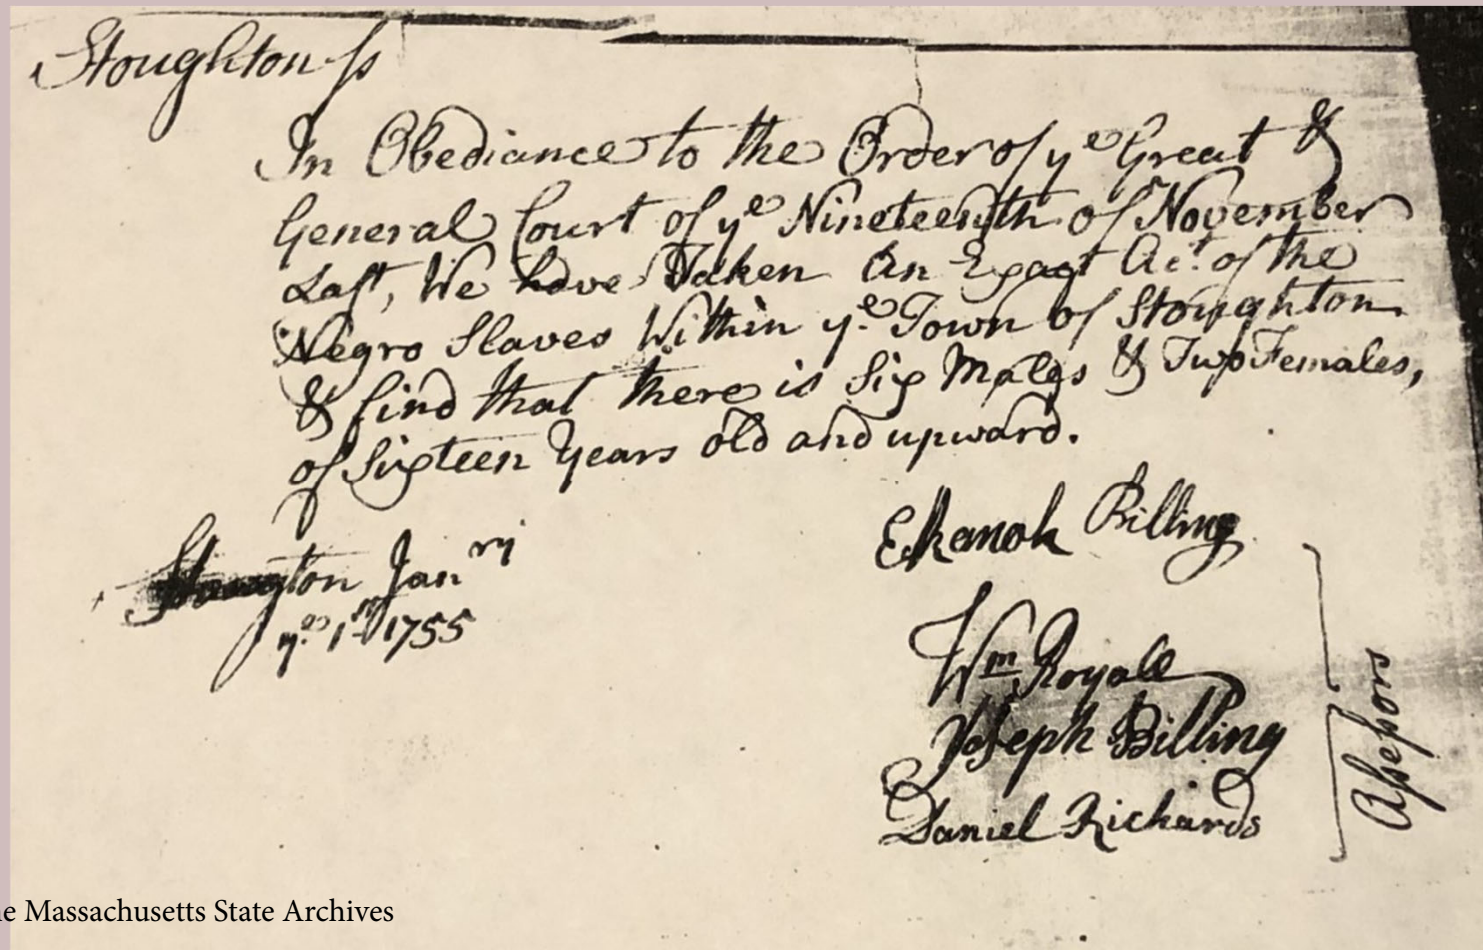 Stoughton ss
In Obediance to the Order of yᵉ Great &
General Court of yᵉ Nineteenth of November
Last, We have Taken An Exact Acᵗ. of the
Negro Slaves Within yᵉ Town of Stoughton
& find that there is Six Males & Two Females,
of Sixteen Years old and upward.
Stougton Janʳʸ
yᵉ 1ˢᵗ 1755
Elkanah Billing
Wᵐ Royall
Joseph Billing
Daniel Richards
Assessors
e Massachusetts State Archives